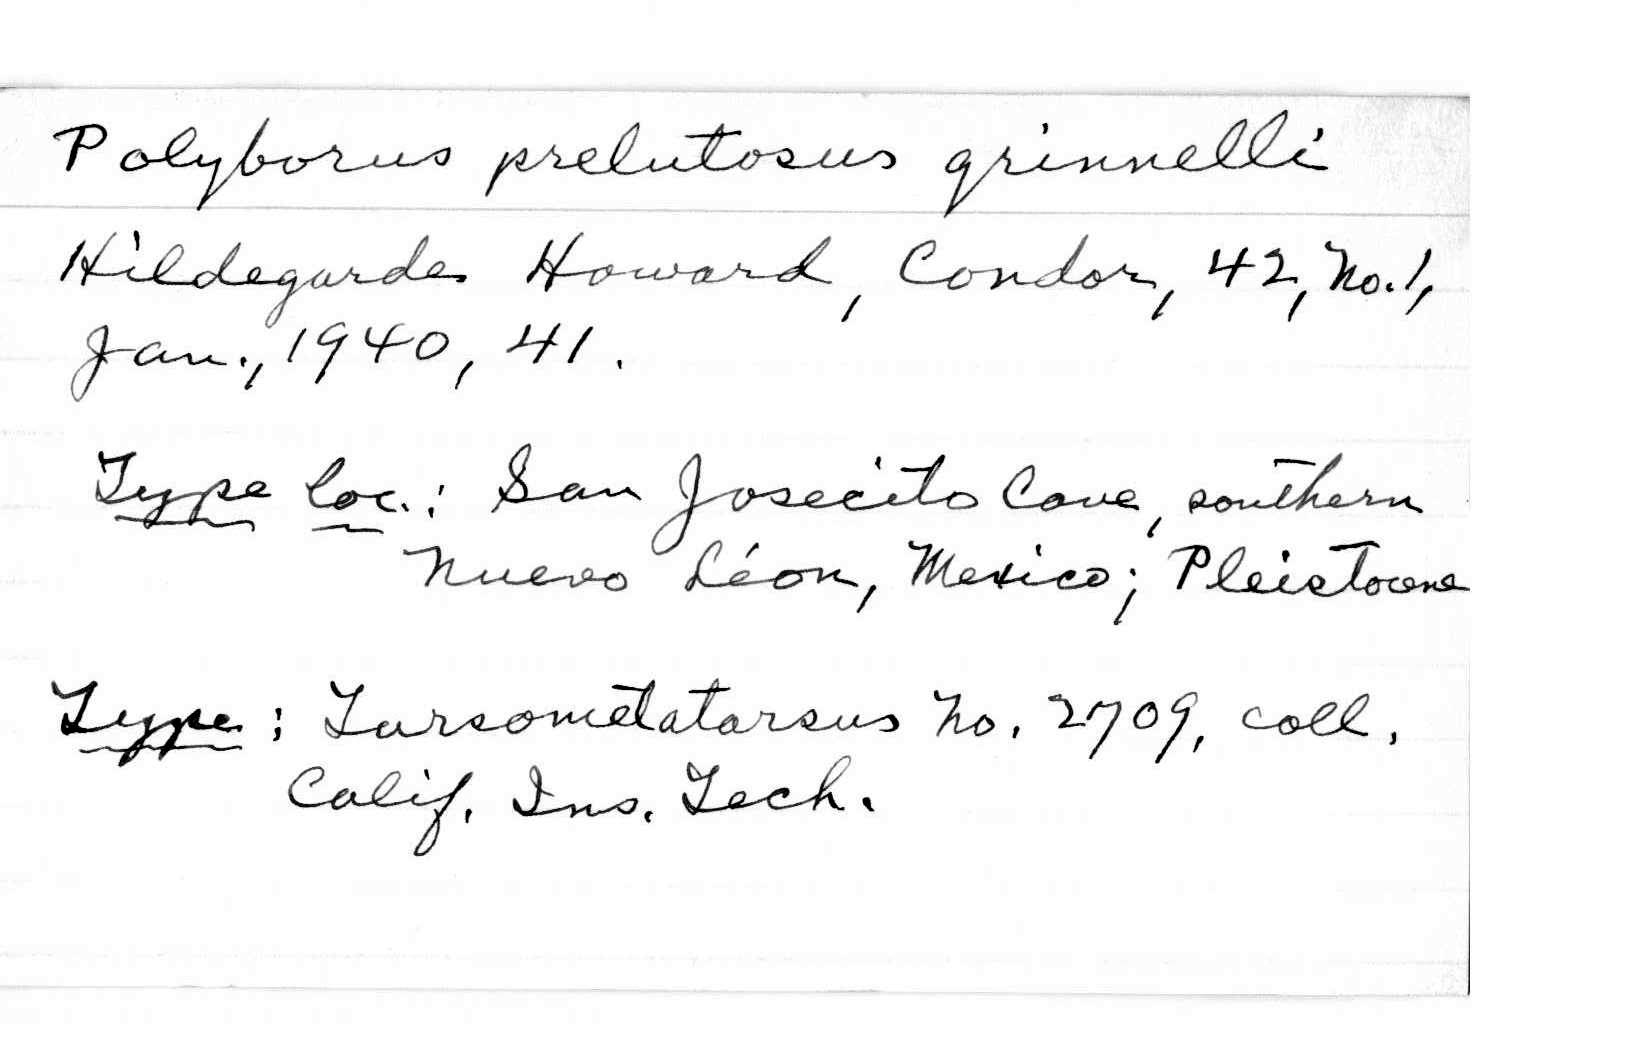 Polyborus prelutosus grinnelli
Hildegarde Howard, Condor, 42, No. 1,
Jan., 1940, 41.
Type loc.: San Josecito Cave, southern
Nuevo Léon, Mexico; Pleistocene
Type: Tarsometatarsus No. 2709, coll.
Calif. Ins. Tech.